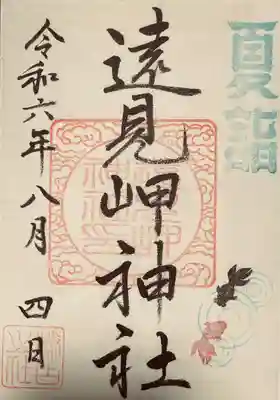 夏詣
遠見岬神社
令和六年八月四日